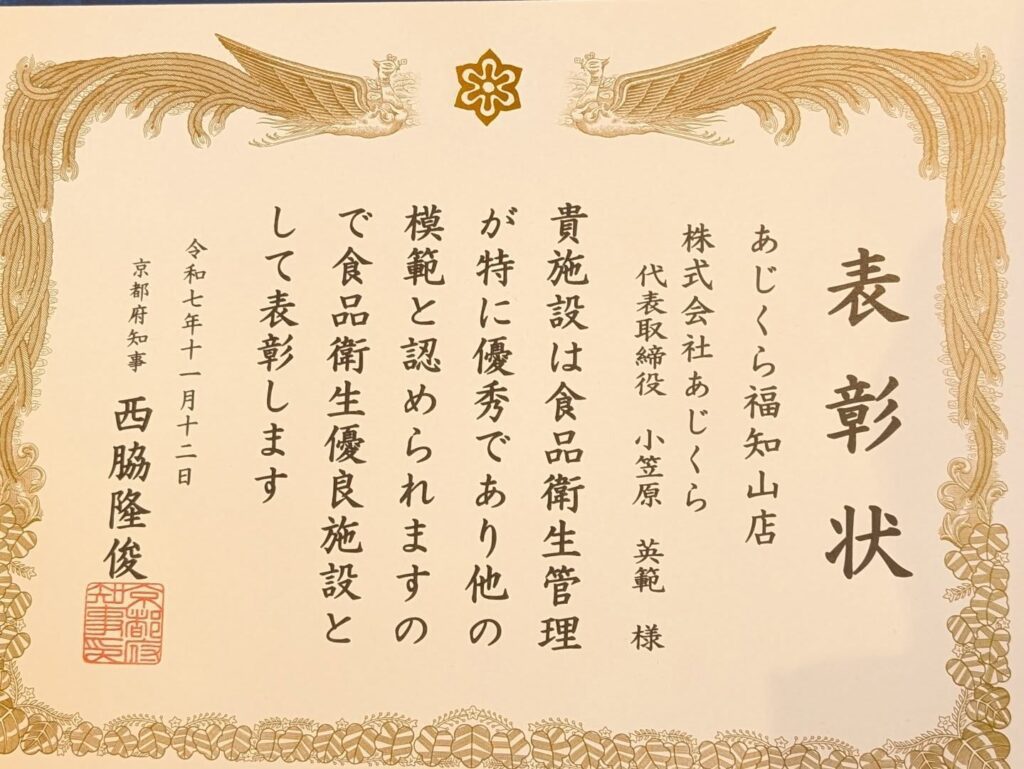 表彰状
あじくら福知山店
株式会社あじくら
代表取締役 小笠原 英範 様
貴施設は食品衛生管理
が特に優秀であり他の
模範と認められますの
で食品衛生優良施設と
して表彰します
令和七年十一月十二日
京都府知事 西脇隆俊
京都府
知事印